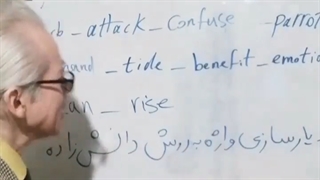 attack _ confuse parrot
_ tide _ benefit _ emotio
_ rise
یارسازی واژه به روش دانش زاده